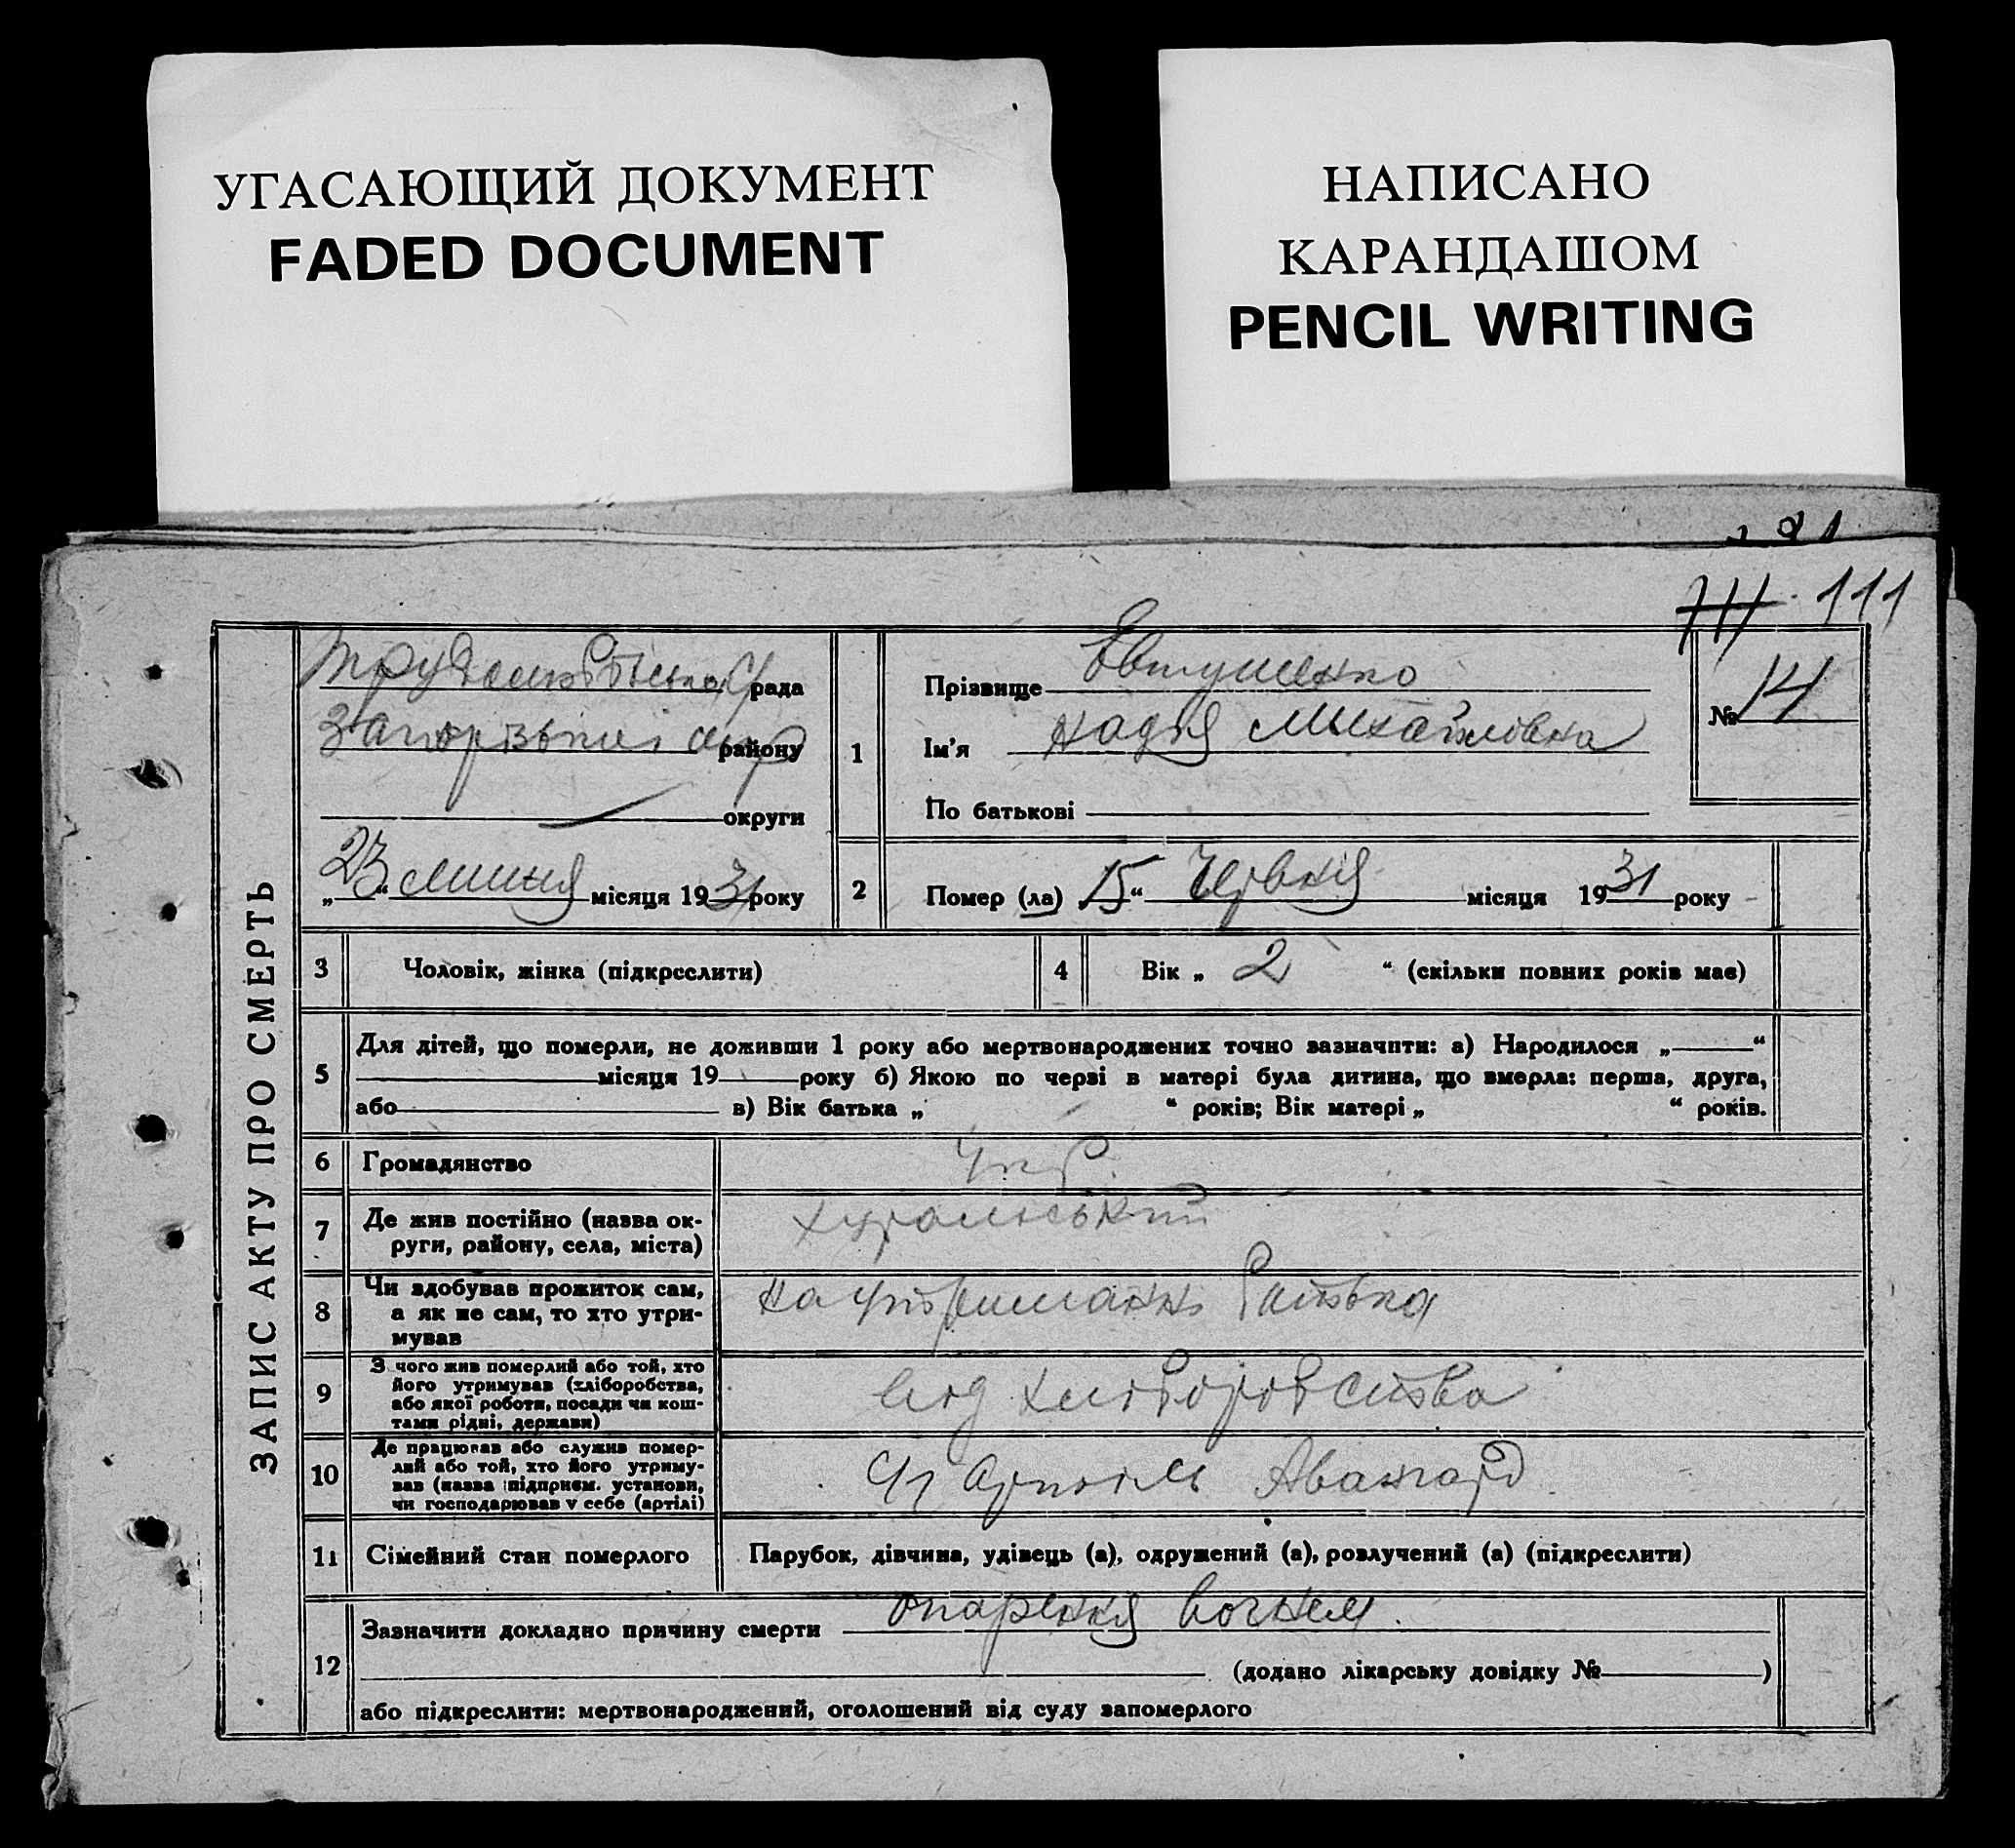 УГАСАЮЩИЙ ДОКУМЕНТ
FADED DOCUMENT
НАПИСАНО
КАРАНДАШОМ
PENCIL WRITING
111 111
ЗАПИС АКТУ ПРО СМЕРТЬ
рада
району
округи
„23“ липня місяця 1931 року
№ 14
1
Прізвище Евтушенко
Ім'я Надія Михайлівна
По батькові
2 Помер (ла) „15“ Червня місяця 1931 року
3 Чоловік, жінка (підкреслити)
4 Вік „ 2 “ (скільки повних років має)
5 Для дітей, що померли, не доживши 1 року або мертвонароджених точно зазначити: а) Народилося „ “
місяця 19 року б) Якою по черзі в матері була дитина, що вмерла: перша, друга,
або в) Вік батька „ “ років; Вік матері „ “ років.
6 Громадянство Укр.
7 Де жив постійно (назва ок-
руги, району, села, міста)
8 Чи здобував прожиток сам,
а як не сам, то хто утри-
мував
на утриманні батька
9 З чого жив померлий або той, хто
його утримував (хліборобства,
або якої роботи, посади чи кош-
тами рідні, держави)
від хліборобства
10 Де працював або служив помер-
лий або той, хто його утриму-
вав (назва підприєм. установи,
чи господарював у себе (артілі)
Артіль Авангард
11 Сімейний стан померлого Парубок, дівчина, удівець (а), одружений (а), розлучений (а) (підкреслити)
12 Зазначити докладно причину смерти опарення вогнем.
(додано лікарську довідку № )
або підкреслити: мертвонароджений, оголошений від суду запомерлого